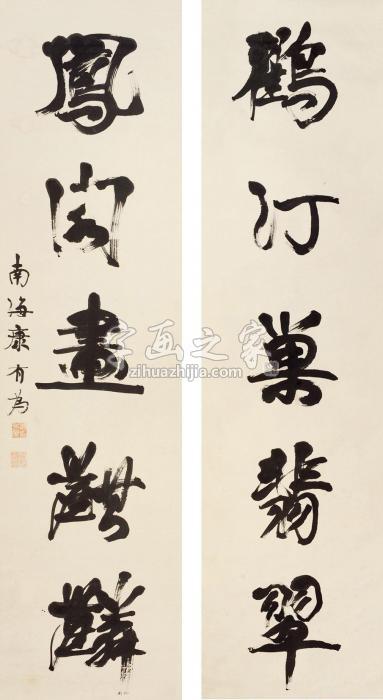 鶴汀巢翡翠
鳳閣畫麒麟
南海康有為
字画之家
zihuazhijia.com